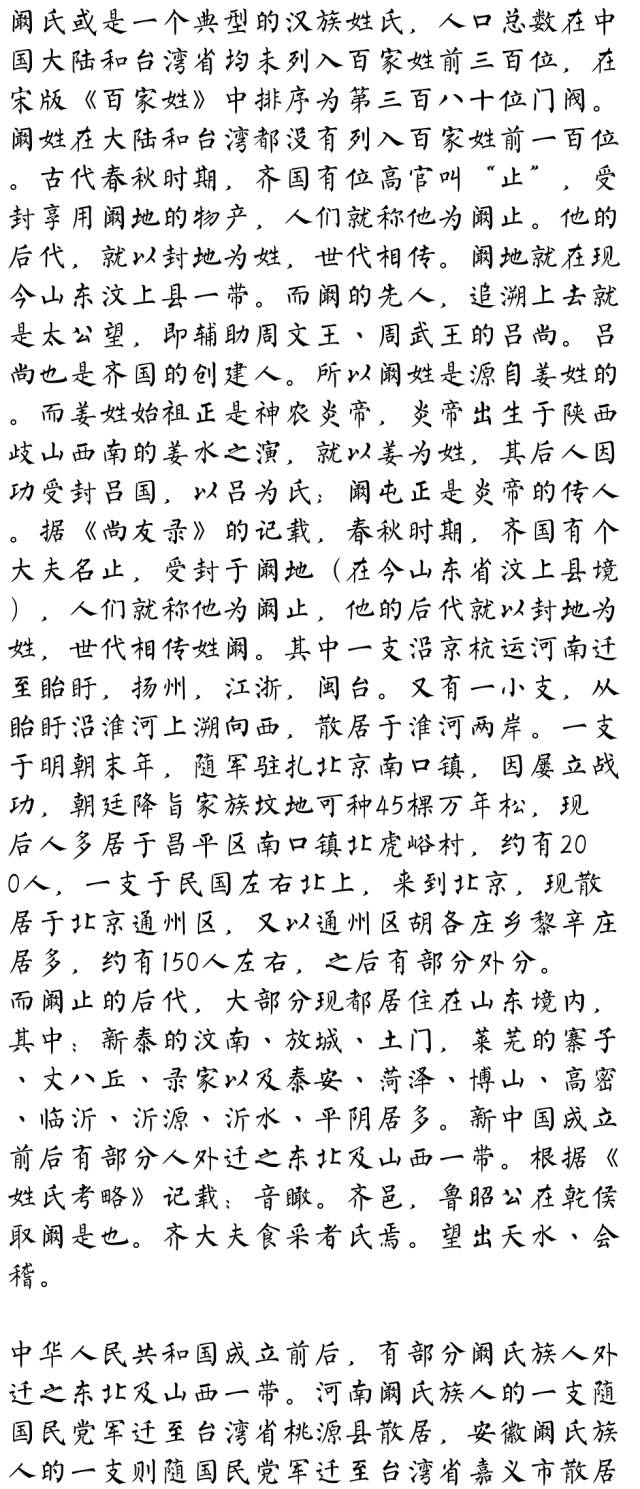 阚氏或是一个典型的汉族姓氏，人口总数在中
国大陆和台湾省均未列入百家姓前三百位，在
宋版《百家姓》中排序为第三百八十位门阀。
阚姓在大陆和台湾都没有列入百家姓前一百位
。古代春秋时期，齐国有位高官叫“止”，受
封享用阚地的物产，人们就称他为阚止。他的
后代，就以封地为姓，世代相传。阚地就在现
今山东汶上县一带。而阚的先人，追溯上去就
是太公望，即辅助周文王、周武王的吕尚。吕
尚也是齐国的创建人。所以阚姓是源自姜姓的
。而姜姓始祖正是神农炎帝，炎帝出生于陕西
歧山西南的姜水之演，就以姜为姓，其后人因
功受封吕国，以吕为氏；阚屯正是炎帝的传人
。据《尚友录》的记载，春秋时期，齐国有个
大夫名止，受封于阚地（在今山东省汶上县境
），人们就称他为阚止，他的后代就以封地为
姓，世代相传姓阚。其中一支沿京杭运河南迁
至眙盱，扬州，江浙，闽台。又有一小支，从
眙盱沿淮河上溯向西，散居于淮河两岸。一支
于明朝末年，随军驻扎北京南口镇，因屡立战
功，朝廷降旨家族坟地可种45棵万年松，现
后人多居于昌平区南口镇北虎峪村，约有20
0人，一支于民国左右北上，来到北京，现散
居于北京通州区，又以通州区胡各庄乡黎辛庄
居多，约有150人左右，之后有部分外分。
而阚止的后代，大部分现都居住在山东境内，
其中：新泰的汶南、放城、土门，莱芜的寨子
、丈八丘、录家以及泰安、菏泽、博山、高密
、临沂、沂源、沂水、平阴居多。新中国成立
前后有部分人外迁之东北及山西一带。根据《
姓氏考略》记载：音瞰。齐邑，鲁昭公在乾侯
取阚是也。齐大夫食采者氏焉。望出天水、会
稽。
中华人民共和国成立前后，有部分阚氏族人外
迁之东北及山西一带。河南阚氏族人的一支随
国民党军迁至台湾省桃源县散居，安徽阚氏族
人的一支则随国民党军迁至台湾省嘉义市散居